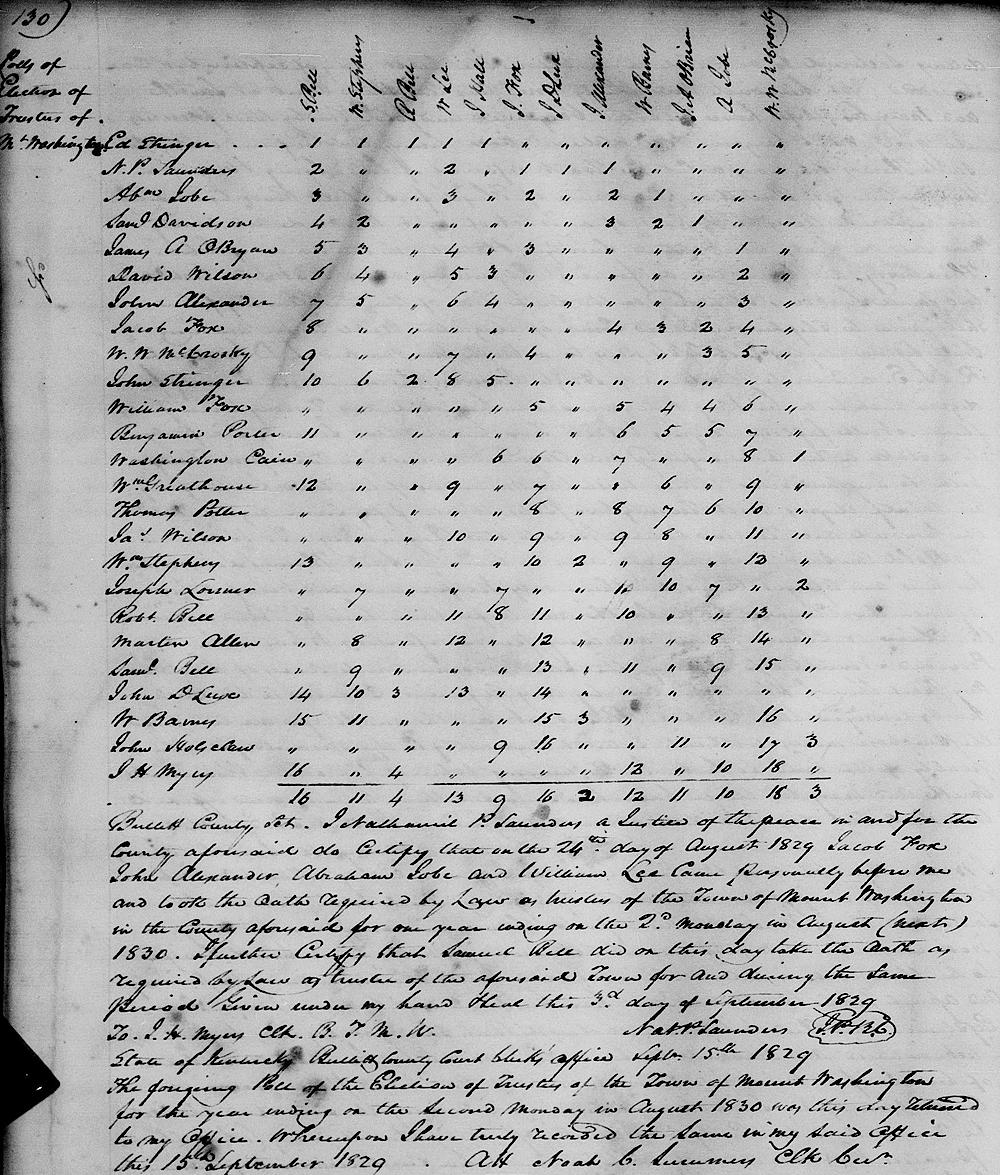 130)
S. Bell W. Stephens A Bell W Lee J Hall J. Fox J D Luce J Alexander W Barnes J. A OBrien A Jobe W. W McCrosky
Polls of
Election of
Trustees of
Mt. Washington Ed Stringer 1 1 1 1 1 " " " " " " "
N. P. Saunders 2 " " 2 " 1 1 1 " " " "
Abm Jobe 3 " " 3 " 2 " 2 1 " " "
Saml Davidson 4 2 " " " " " 3 2 1 " "
James A OBryan 5 3 " 4 " 3 " " " " 1 "
David Wilson 6 4 " 5 3 " " " " " 2 "
John Alexander 7 5 " 6 4 " " " " " 3 "
Jacob Fox 8 " " " " " " 4 3 2 4 "
W W McCrosky 9 " " 7 " 4 " " " 3 5 "
John Stringer 10 6 2 8 5 " " " " " " "
William Fox " " " " " 5 " 5 4 4 6 "
Benjamin Porter 11 " " " " " " 6 5 5 7 "
Washington Cain " " " " 6 6 " 7 " " 8 1
Wm Greathouse 12 " " 9 " 7 " " 6 " 9 "
Thomas Potter " " " " " 8 " 8 7 6 10 "
Jas. Wilson " " " 10 " 9 " 9 8 " 11 "
Wm Stephens 13 " " " " 10 2 " 9 " 12 "
Joseph " 7 " " 7 " " 10 7 " 2
Robt. Bell " " " 11 8 11 " 10 " " 13 "
Martin Allen " 8 " 12 " 12 " " " 8 14 "
Saml. Bell " 9 " " " 13 " 11 " 9 15 "
John D Luce 14 10 3 13 " 14 " " " " " "
W Barnes 15 11 " " " 15 3 " " " 16 "
John Holsclaw " " " " 9 16 " " 11 " 17 3
J H Myers 16 " 4 " " " " 12 " 10 18 "
16 11 4 13 9 16 2 12 11 10 18 3
Bullitt County Sct. I Nathaniel P. Saunders a Justice of the peace in and for the
County aforesaid do Certify that on the 24th day of August 1829 Jacob Fox
John Alexander, Abraham Jobe and William Lee Came personally before me
and took the oath required by Law as trustees of the Town of Mount Washington
in the County aforesaid for one year ending on the 2d. monday in August (next)
1830. I further Certify that Samuel Bell did on this day take the Oath as
required by Law as trustee of the aforesaid Town for and during the Same
Period Given under my hand & seal this 3.d day of September 1829
To. J. H. Myers Clk. B. T. M. W. Nat P. Saunders J.P.B.C
State of Kentucky Bullitt County Court Clerks office Septr. 15th 1829
The foregoing Poll of the Election of Trustes of the Town of Mount Washington
for the year ending on the Second Monday in August 1830 was this day returned
to my Office. Whereupon I have truly recorded the Same in my said office
this 15th September 1829 . Att Noah C. Summers Clk